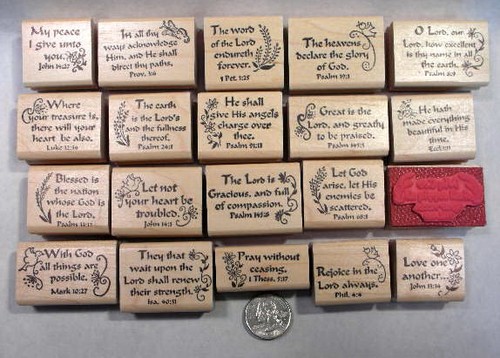 My peace
I give unto
you.
John 14:27
In all thy
ways acknowledge
Him, and He shall
direct thy paths.
Prov. 3:6
The word
of the Lord
endureth
forever.
1 Pet. 1:25
The heavens
declare the glory
of God.
Psalm 19:1
O Lord, our
Lord, how excellent
is thy name in all
the earth.
Psalm 8:9
Where
your treasure is,
there will your
heart be also.
Luke 12:34
The earth
is the Lord's
and the fullness
thereof.
Psalm 24:1
He shall
give His angels
charge over
thee.
Psalm 91:11
Great is the
Lord, and greatly
to be praised.
Psalm
He hath
made everything
beautiful in His
time.
Blessed is
the nation
whose God is
the Lord.
Psalm 33:12
Let not
your heart be
troubled.
John 14:1
The Lord is
Gracious, and full
of compassion.
Psalm 145:8
Let God
arise, let His
enemies be
scattered.
Psalm 68:1
With God
all things are
possible.
Mark 10:27
They that
wait upon the
Lord shall renew
their strength.
Isa. 40:31
Pray without
ceasing.
1 Thess. 5:17
Rejoice in the
Lord always.
Phil. 4:4
Love one
another...
John 13:34